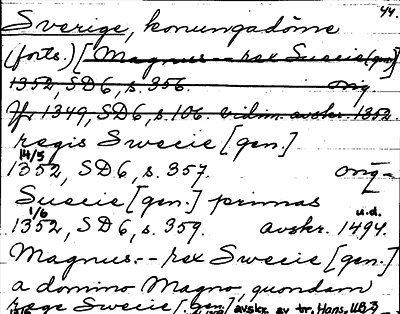 44.
Sverige, konungadöme
(forts.) [Magnus -- rex Suecie [gen.]
1352, SD6, s. 356. orig
Jfr 1349, SD6, s. 106. vidim. avskr. 1352.
regis Swecie [gen.]
14/5
1352, SD6, s. 357. orig-
Suecie [gen.] primas
1/6 u.d.
1352, SD6, s. 359. avskr. 1494.
Magnus -- rex Swecie [gen.]
a domino Magno, quondam
rege Swecie [gen.] avskr. av tr. Hans.